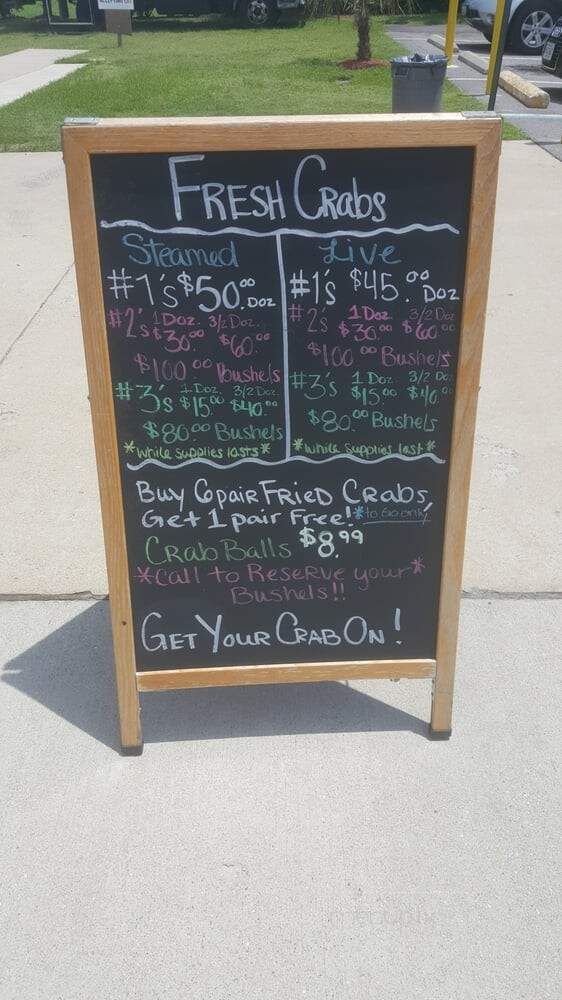 FRESH CRabs
Steamed
#1's $50.00 Doz
#2's 1 Doz. 3/2 Doz.
$30.00 $60.00
$100.00 Bushels
#3's 1 Doz. 3/2 Doz.
$15.00 $40.00
$80.00 Bushels
*while supplies lasts*
Live
#1's $45.00 Doz
#2's 1 Doz 3/2 Doz
$30.00 $60.00
$100.00 Bushels
#3's 1 Doz. 3/2 Doz.
$15.00 $40.00
$80.00 Bushels
*while supplies last*
Buy 6 pair FRIED CRABS,
Get 1 pair Free! *to go only
CRab Balls $8.99
*Call to ReseRve your*
Bushels!!
GET YOUR CRAB ON!